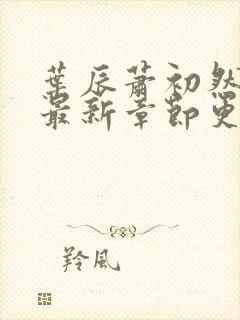 葉辰蕭初然
最新章節更
羚風